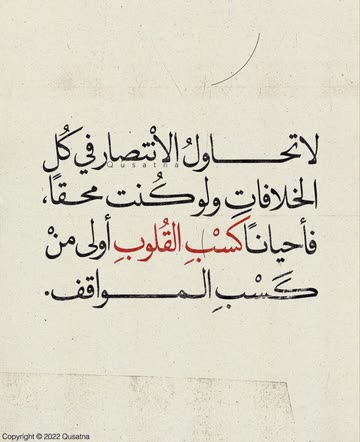 لا تحاولُ الأنْتصار في كُل
الخلافاتِ ولو كُنت محقاً،
فأحياناً كَسْبِ القُلوبِ أولى منْ
كَسْبِ المواقف.
Qusatna
Copyright © 2022 Qusatna